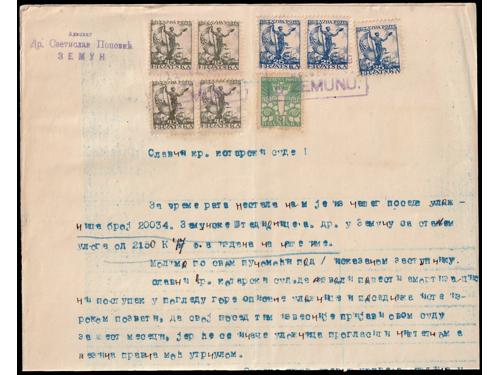 Адвокат
Др. Светислав Поповић
ЗЕМУН
HRVATSKA HRVATSKA HRVATSKA HRVATSKA HRVATSKA
HRVATSKA HRVATSKA HRVATSKA
ZEMUNU.
Славни кр. котарски суде !
За време рата нестала нам је из нашег поседа улож-
ница број 20034. Земунске Штедионице а. др. у Земуну са стањем
улога од 2150 К а издана на наше име.
Молимо по свом пуномоћи под / исказаном заступнику.
Славни кр. котарски суд да изволи повести амортизацио-
ни поступак у погледу горе описане уложнице и поседника исте из-
роком позвати, да свој посед тим известније пријави овом суду
за шест месеци, јер ће се иначе уложница прогласити ништетном а
њезина правна моћ утрнулом.